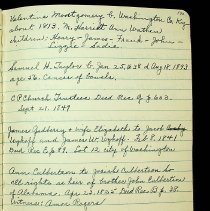 Valentine Montgomery b. Washington Co Ky
about 1813. M. Harriett Ann Mathew
children: Henry - James - Frank - John
Lizzie & Sadie.
Samuel H. Taylor b. Jan 25, 1838 d Aug 18, 1893
age 56. Cause of
C P Church Trustees Deed Rec. p 603
Sept 21, 1849
James Jabbory & wife Elizabeth to Jacob
Wyckoff and James W. Wyckoff. Feb 8, 1841
Deed Rec E p 89. Lot 12 city of Washington
Ann Culbertson to Josiah Culbertson her
all rights as heir of brother John Culbertson
of Alabama. Apr 23, 1825 Deed Rec B p. 38.
Witness: Amos Rogers